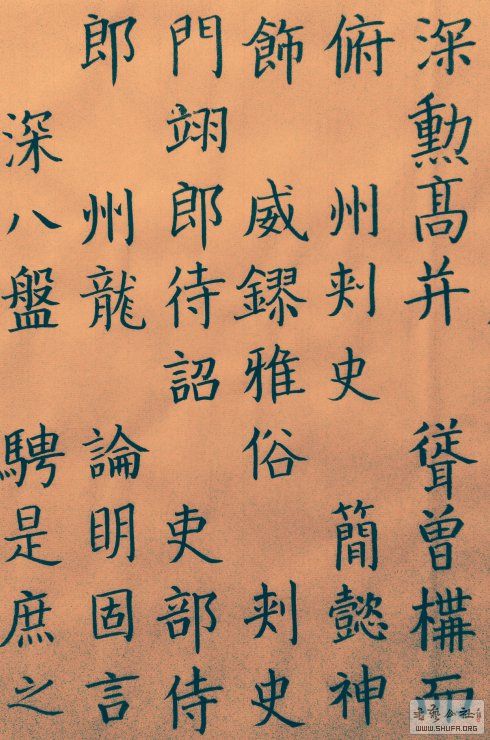 深勲髙并 聳曾構而
俯 州刺史 簡懿神
飾 威鏐雅俗 刺史
門翊郎待詔 吏部侍
郎 州龍 論明固言
深八盤 騁是庶之
WWW.SHUFA.ORG